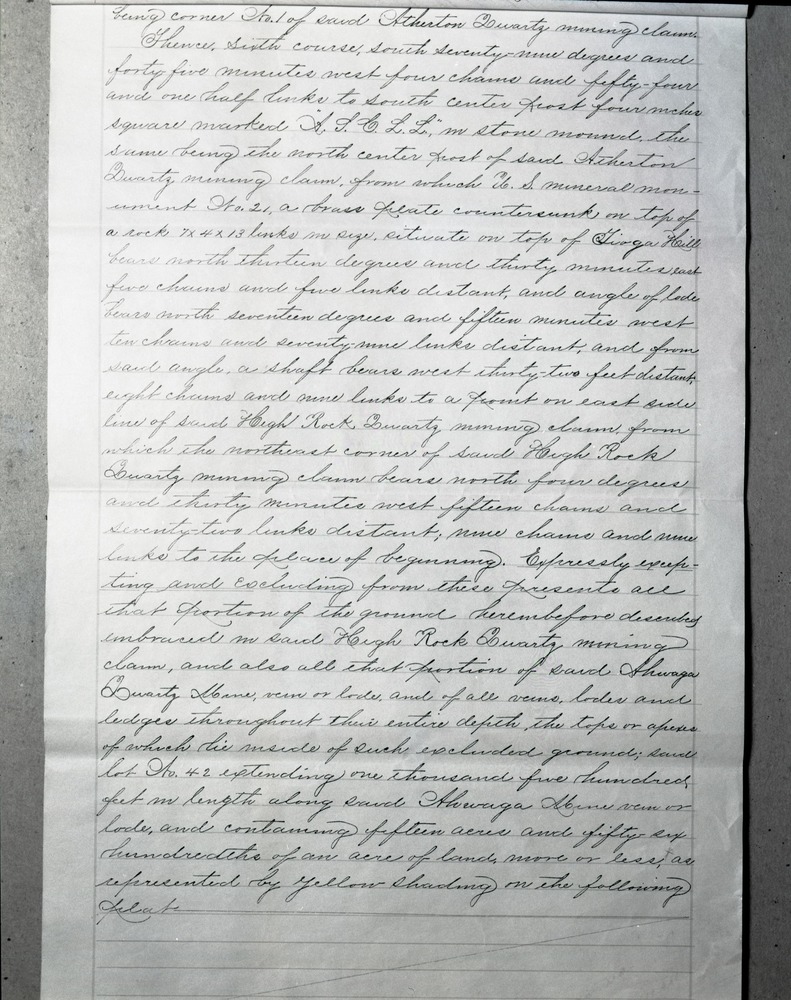 being corner No. 1 of said Atherton Quartz mining claim.
Thence, sixth course, south seventy-nine degrees and
forty-five minutes west four chains and fifty-four
and one half links to south center post four inches
square marked "A. S. C. L. L.", in stone mound, the
same being the north center post of said Atherton
Quartz mining claim, from which U. S. mineral mon-
ument No. 21, a brass plate countersunk on top of
a rock 7x4x13 links in size, situate on top of Tioga Hill
bears north thirteen degrees and thirty minutes east
five chains and five links distant, and angle of lode
bears north seventeen degrees and fifteen minutes west
ten chains and seventy-nine links distant, and from
said angle, a shaft bears west thirty-two feet distant,
eight chains and nine links to a point on east side
line of said High Rock Quartz mining claim, from
which the northeast corner of said High Rock
Quartz mining claim bears north four degrees
and thirty minutes west fifteen chains and
seventy-two links distant; nine chains and nine
links to the place of beginning. Expressly excep-
ting and excluding from these presents all
that portion of the ground hereinbefore described
embraced in said High Rock Quartz mining
claim, and also all that portion of said Ahwaga
Quartz Mine, vein or lode, and of all veins, lodes and
ledges throughout their entire depth, the tops or apexes
of which lie inside of such excluded ground; said
lot No. 42 extending one thousand five hundred
feet in length along said Ahwaga Mine vein or
lode, and containing fifteen acres and fifty-six
hundredths of an acre of land, more or less, as
represented by yellow shading on the following
plat